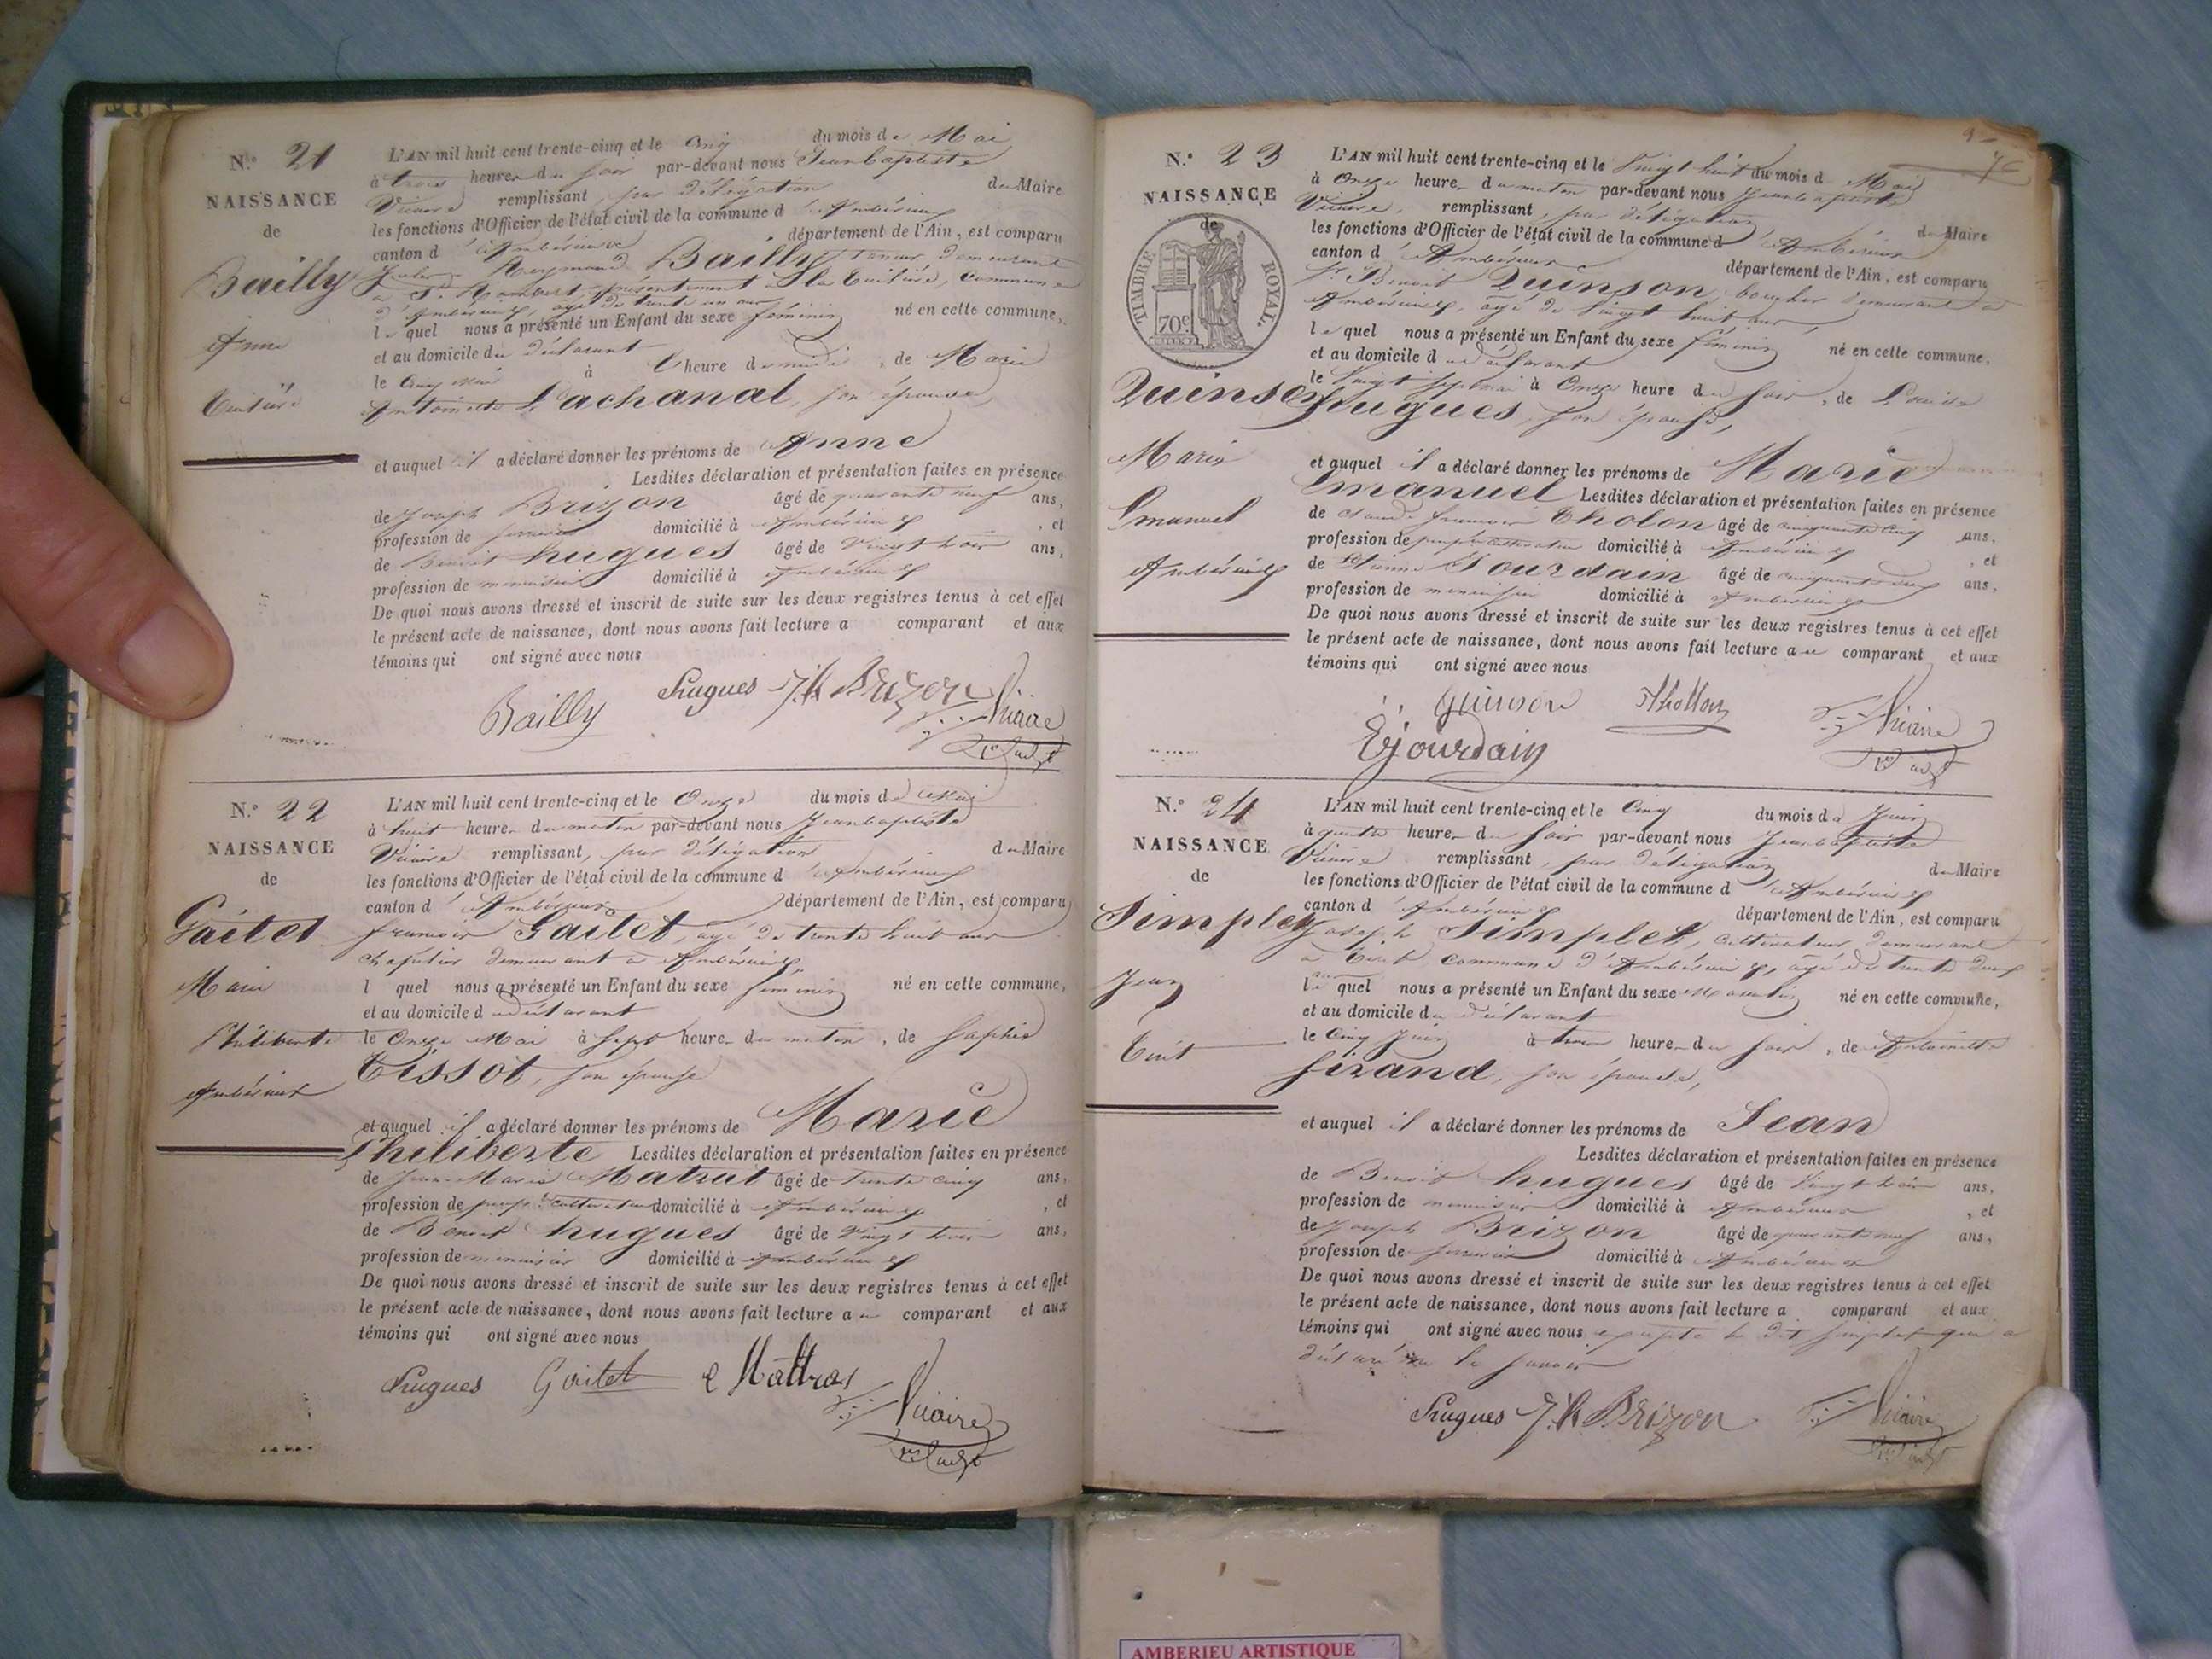 N.° 21
NAISSANCE
de
Bailly
Anne
L'AN mil huit cent trente-cinq et le Cinq du mois de Mai
à trois heures du soir par-devant nous Jean baptiste
Vicaire remplissant, par délégation du Maire
les fonctions d'Officier de l'état civil de la commune d'Ambérieux
canton d'Ambérieux département de l'Ain, est comparu
Reymond Bailly, demeurant
à St Rambert, présentement à la commune
d'Ambérieux, âgé de trente un ans
lequel nous a présenté un Enfant du sexe féminin né en cette commune,
et au domicile du déclarant
le Cinq Mai à heure de midi, de Marie
Antoinette Lachanal, son épouse
et auquel il a déclaré donner les prénoms de Anne
Lesdites déclaration et présentation faites en présence
de Joseph Brizon âgé de quarante neuf ans,
profession de domicilié à Ambérieux, et
de Benoit hugues âgé de Vingt trois ans,
profession de menuisier domicilié à Ambérieux
De quoi nous avons dressé et inscrit de suite sur les deux registres tenus à cet effet
le présent acte de naissance, dont nous avons fait lecture a comparant et aux
témoins qui ont signé avec nous
Bailly Hugues J. Brizon Vicaire
N.° 22
NAISSANCE
de
Gaitet
Marie
Philiberte
Ambérieux
L'AN mil huit cent trente-cinq et le Onze du mois de Mai
à huit heures du matin par-devant nous Jean baptiste
Vicaire remplissant, par délégation du Maire
les fonctions d'Officier de l'état civil de la commune d'Ambérieux
canton d'Ambérieux département de l'Ain, est comparu
françois Gaitet, âgé de trente huit ans
chapelier demeurant à Ambérieux,
l quel nous a présenté un Enfant du sexe féminin né en cette commune,
et au domicile du déclarant
le Onze Mai à Sept heures du matin, de Sophie
Tissot, son épouse
et auquel il a déclaré donner les prénoms de Marie
Philiberte Lesdites déclaration et présentation faites en présence
de Jean Marie Matrat âgé de trente cinq ans,
profession de prop.re cultivateur domicilié à Ambérieux, et
de Benoit hugues âgé de Vingt trois ans,
profession de menuisier domicilié à Ambérieux
De quoi nous avons dressé et inscrit de suite sur les deux registres tenus à cet effet
le présent acte de naissance, dont nous avons fait lecture au comparant et aux
témoins qui ont signé avec nous
Hugues Gaitet Mattras Vicaire
N.° 23
NAISSANCE
de
TIMBRE ROYAL.
70c
Quinson
Marie
Emanuel
Ambérieux
L'AN mil huit cent trente-cinq et le Vingt huit du mois de Mai
à Onze heures du matin par-devant nous Jean baptiste
Vicaire, remplissant, par délégation du Maire
les fonctions d'Officier de l'état civil de la commune d'Ambérieux
canton d'Ambérieux département de l'Ain, est comparu
Sr. Benoit Quinson, boucher demeurant à
Ambérieux, âgé de Vingt huit ans,
lequel nous a présenté un Enfant du sexe féminin né en cette commune.
et au domicile du déclarant
le Vingt sept mai à Onze heures du soir, de Louise
hugues, son épouse,
et auquel il a déclaré donner les prénoms de Marie
Emanuel Lesdites déclaration et présentation faites en présence
de Claude françois Tholon âgé de cinquante cinq ans,
profession de prop.re cultivateur domicilié à Ambérieux, et
de Etienne Jourdain âgé de cinquante deux ans,
profession de menuisier domicilié à Ambérieux
De quoi nous avons dressé et inscrit de suite sur les deux registres tenus à cet effet
le présent acte de naissance, dont nous avons fait lecture au comparant et aux
témoins qui ont signé avec nous
Quinson Thollon Vicaire
E Jourdain
N.° 24
NAISSANCE
de
Simplet
Jean
Tiret
L'AN mil huit cent trente-cinq et le Cinq du mois de Juin
à quatre heures du soir par-devant nous Jean baptiste
Vicaire remplissant, par délégation du Maire
les fonctions d'Officier de l'état civil de la commune d'Ambérieux
canton d'Ambérieux département de l'Ain, est comparu
Joseph Simplet, cultivateur demeurant
à Tiret commune d'Ambérieux, âgé de trente deux
ans
lequel nous a présenté un Enfant du sexe Masculin né en cette commune,
et au domicile du déclarant
le Cinq Juin à trois heures du soir, de Antoinette
firand, son épouse,
et auquel il a déclaré donner les prénoms de Jean
Lesdites déclaration et présentation faites en présence
de Benoit hugues âgé de Vingt trois ans,
profession de menuisier domicilié à Ambérieux, et
de Joseph Brizon âgé de quarante neuf ans,
profession de domicilié à Ambérieux
De quoi nous avons dressé et inscrit de suite sur les deux registres tenus à cet effet
le présent acte de naissance, dont nous avons fait lecture a comparant et aux
témoins qui ont signé avec nous excepté le dit Simplet qui a
déclaré ne le savoir
Hugues J. Brizon Vicaire
AMBERIEU ARTISTIQUE